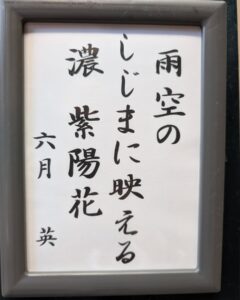 雨空の
しじまに映える
濃紫陽花
六月 英